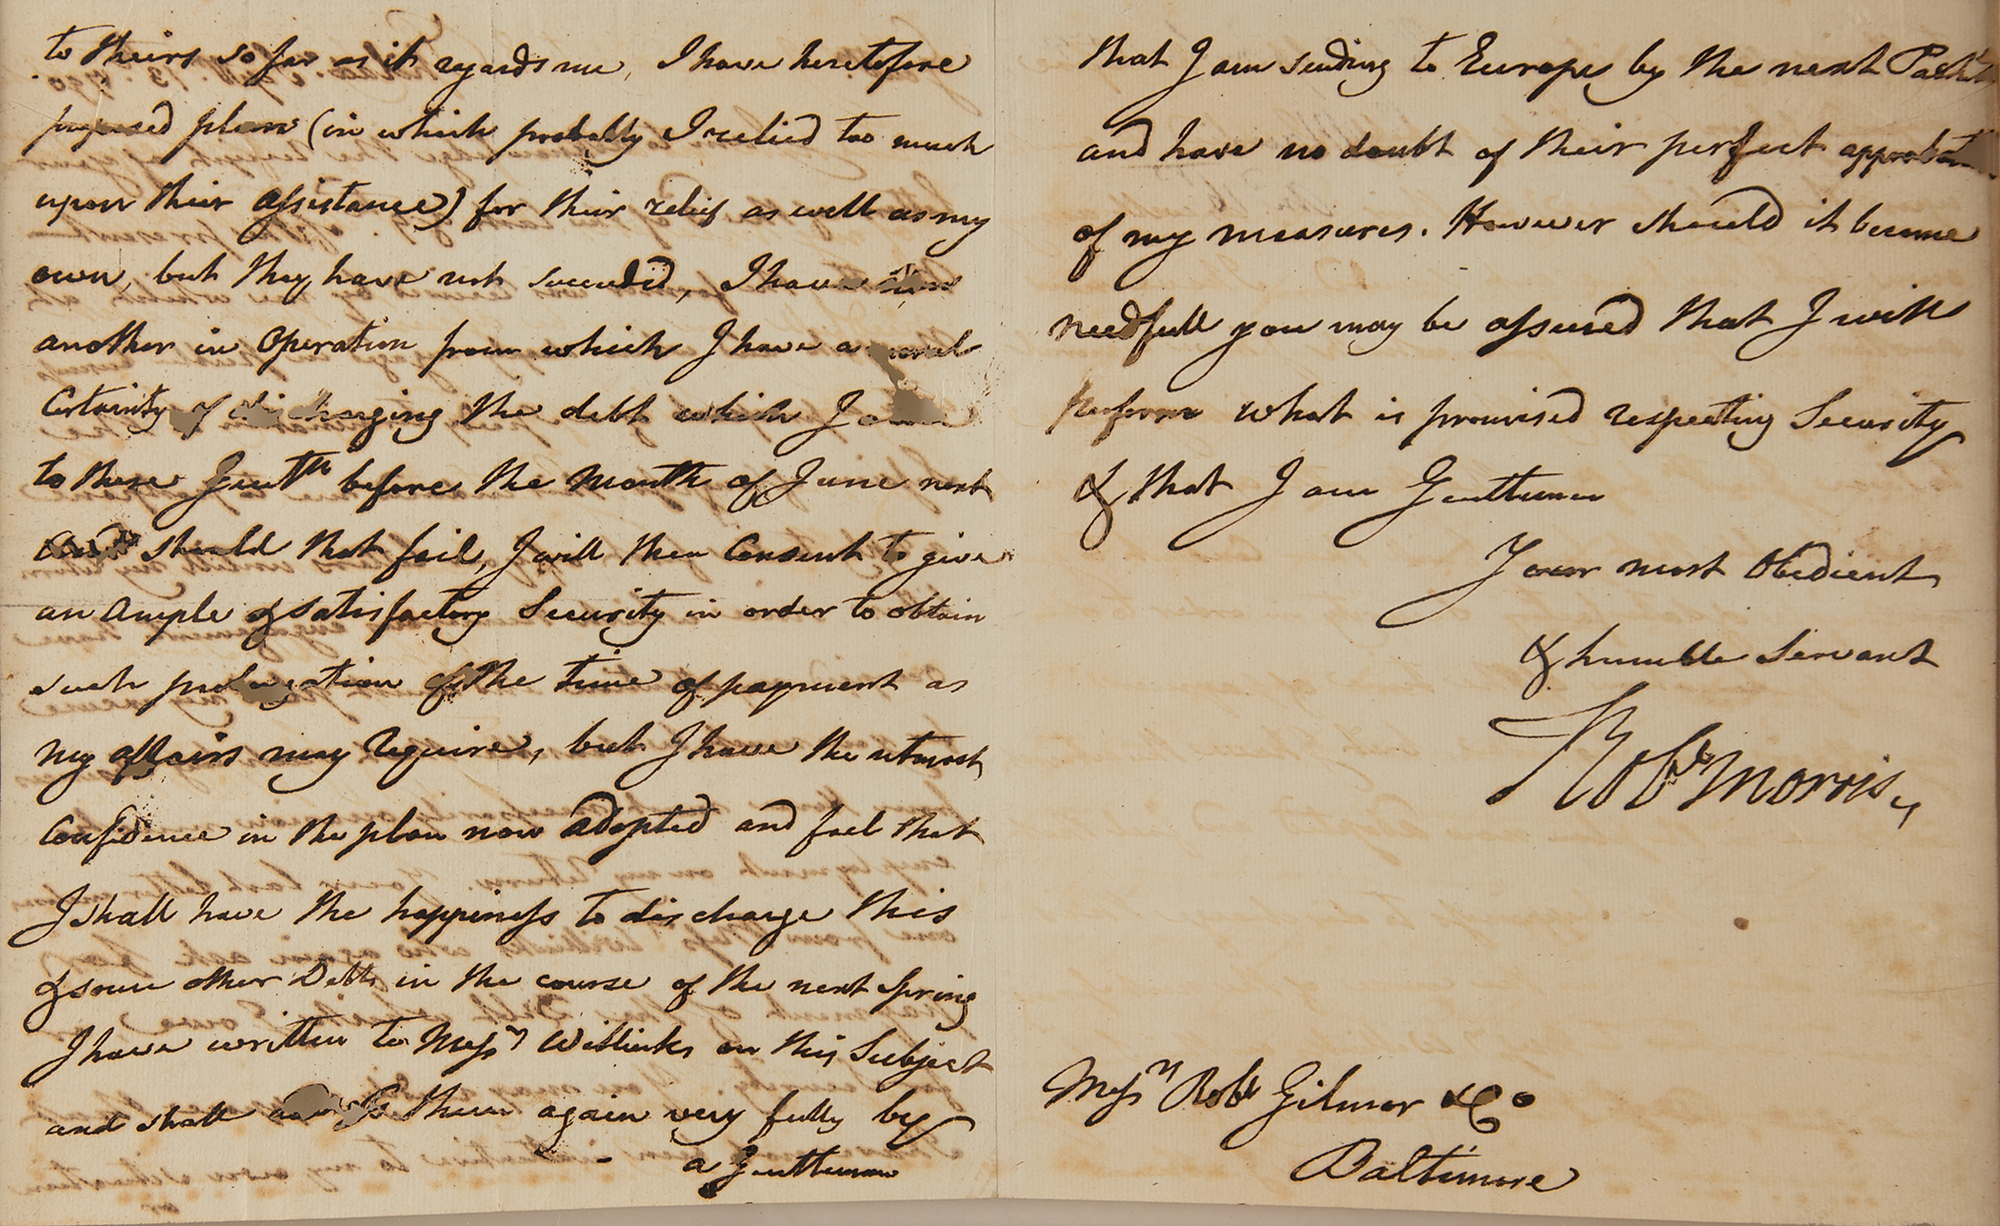 to theirs so far as it regards me, I have heretofore
proposed plans (in which probably I relied too much
upon their assistance) for their relief as well as my
own, but they have not succeeded, I have now
another in Operation from which I have a moral
Certainty of discharging the debt which I owe
to these Gentn before the Month of June next
should that fail, I will then Consent to give
an ample & satisfactory Security in order to obtain
such prolongation of the time of payment as
my affairs may require, but I have the utmost
Confidence in the plan now adopted and feel that
I shall have the happiness to discharge this
& some other Debts in the course of the next Spring
I have written to Messrs Willinks on this Subject
and shall address them again very fully by
a Gentleman
that I am sending to Europe by the next Packet
and have no doubt of their perfect approbation
of my measures. However should it become
needfull you may be assured that I will
perform what is promised respecting Security
& that I am Gentlemen
Your most Obedient
& humble Servant
Robt Morris
Messrs Robt Gilmor & Co
Baltimore